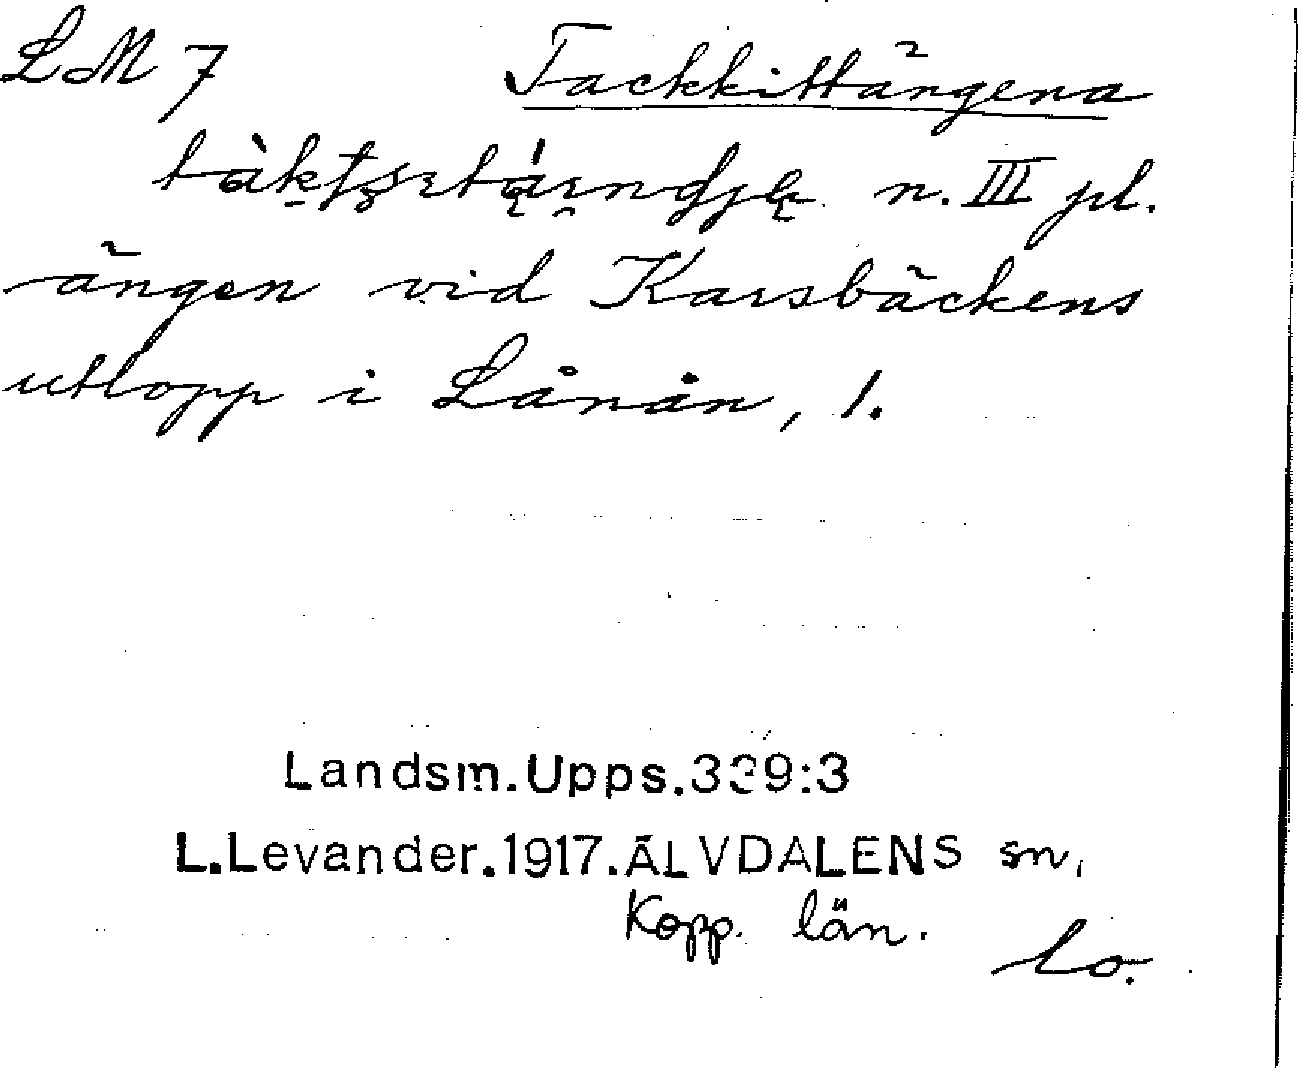 LM 7 Tackkittängena
n. III pl.
ängen vid Karsbäckens
utlopp i Lånån, 1.
Landsm.Upps.339:3
L.Levander.1917.ÄLVDALENS sn,
Kopp. län.
Lo.